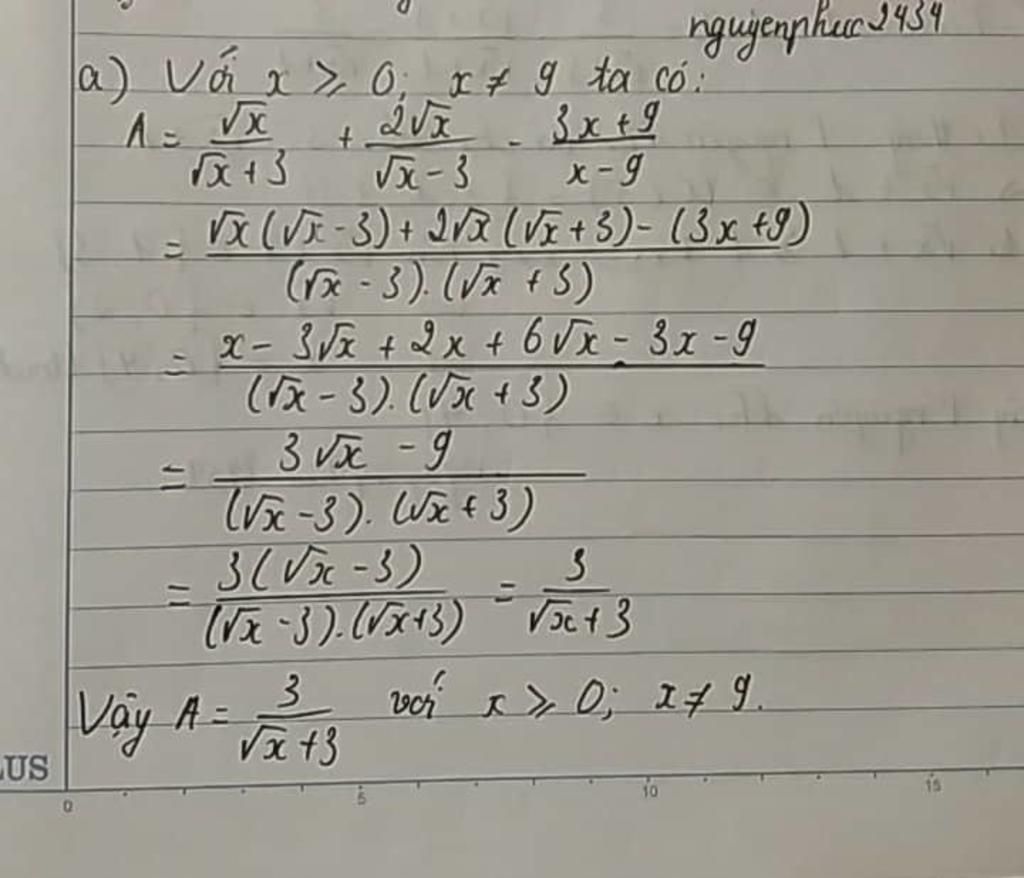 nguyenphuc2434
a) Với x ⩾ 0; x ≠ 9 ta có:
A = √x/(√x + 3) + 2√x/(√x - 3) - (3x + 9)/(x - 9)
= (√x(√x - 3) + 2√x(√x + 3) - (3x + 9))/((√x - 3).(√x + 3))
= (x - 3√x + 2x + 6√x - 3x - 9)/((√x - 3).(√x + 3))
= (3√x - 9)/((√x - 3).(√x + 3))
= 3(√x - 3)/((√x - 3).(√x + 3)) = 3/(√x + 3)
Vậy A = 3/(√x + 3) với x ⩾ 0; x ≠ 9.
US
0 5 10 15